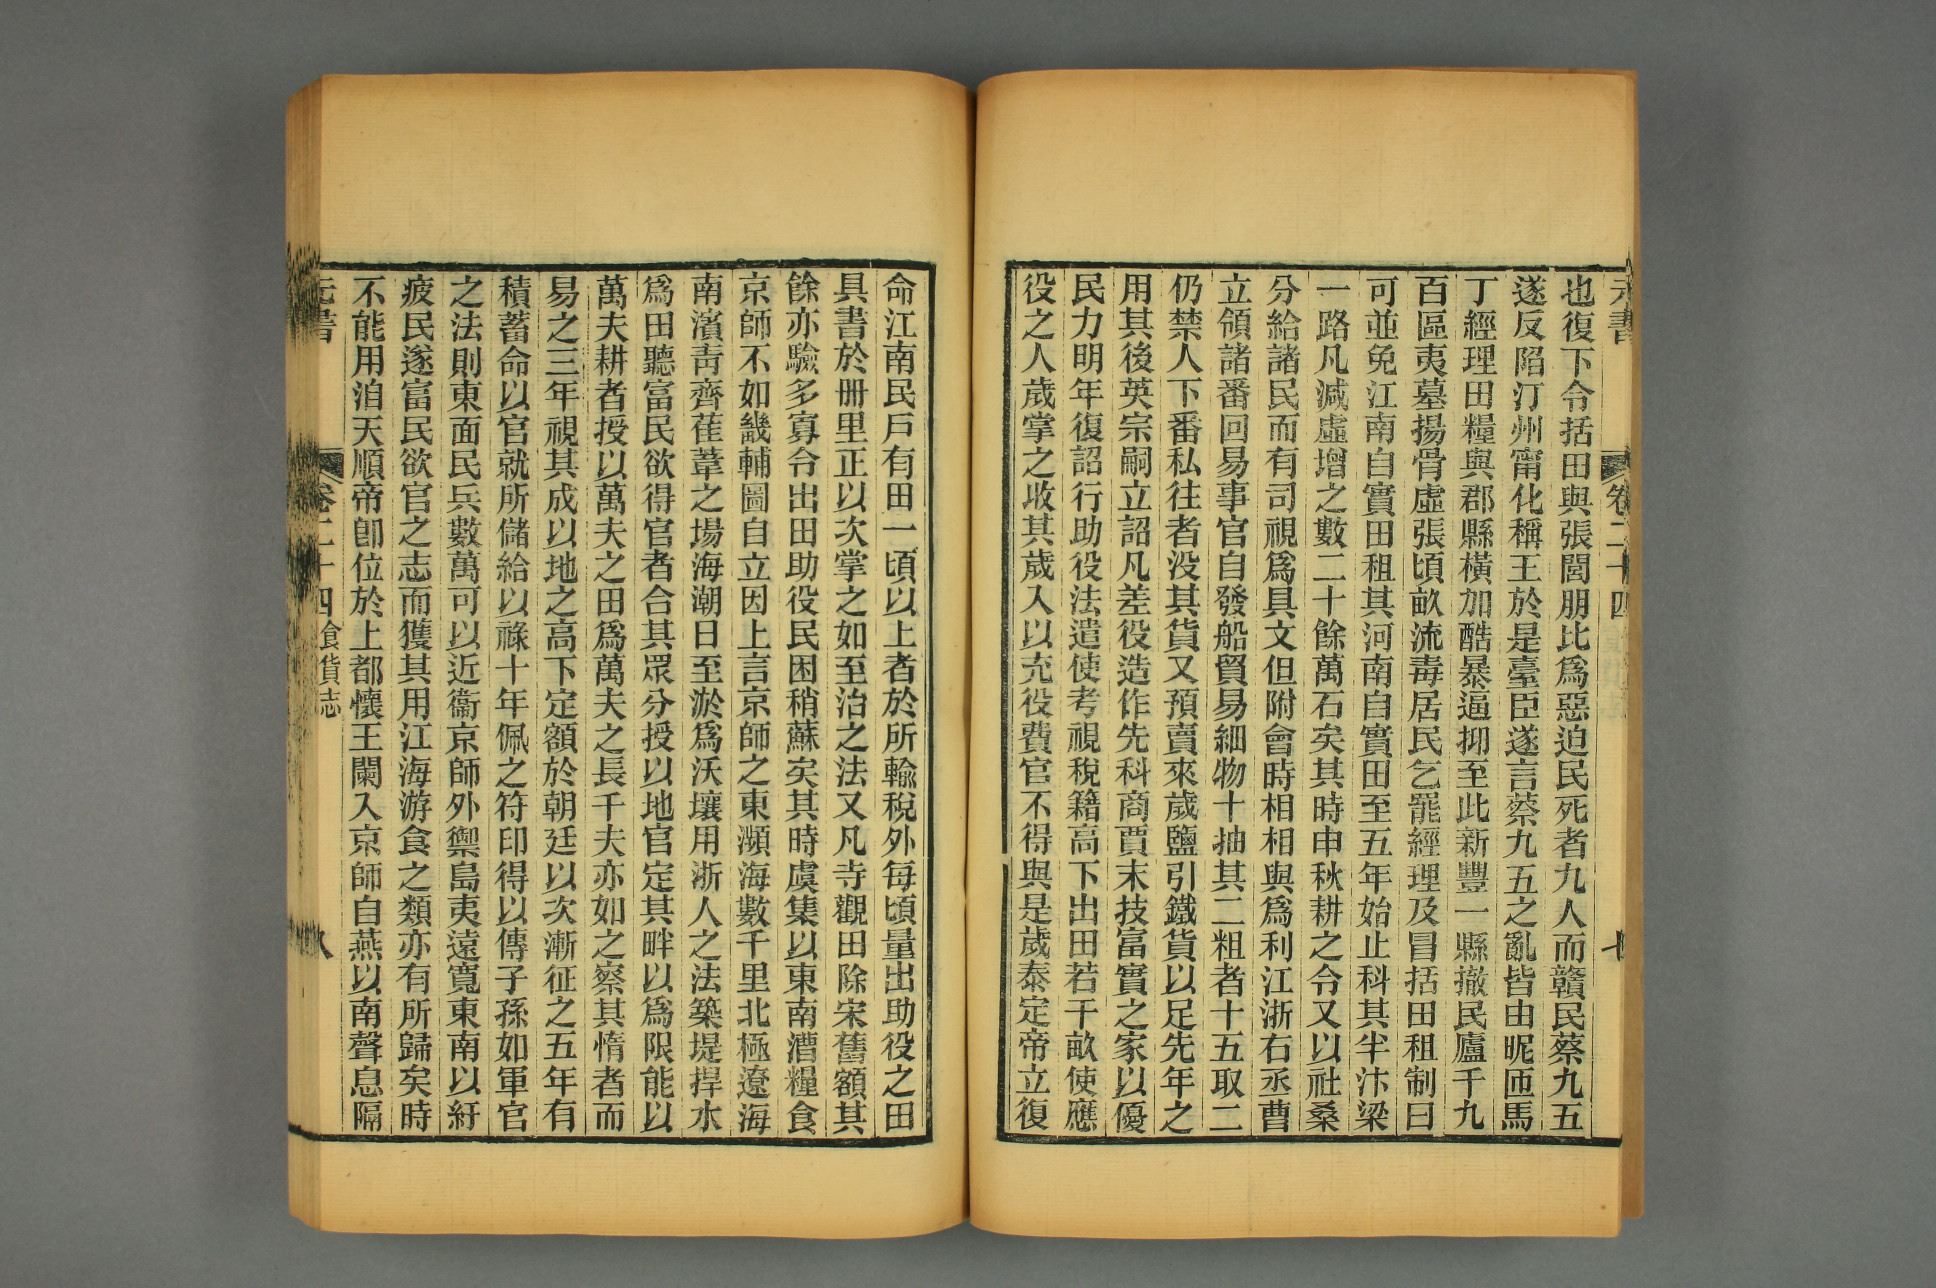 元書 卷二十四 七
也復下令括田與張閭朋比爲惡迫民死者九人而贛民蔡九五
遂反陷汀州甯化稱王於是臺臣遂言蔡九五之亂皆由昵匝馬
丁經理田糧與郡縣橫加酷暴逼抑至此新豐一縣撤民廬千九
百區夷墓揚骨虛張頃畝流毒居民乞罷經理及冒括田租制曰
可並免江南自實田租其河南自實田至五年始止科其半汴梁
一路凡減虛增之數二十餘萬石矣其時申秋耕之令又以社桑
分給諸民而有司視爲具文但附會時相相與爲利江浙右丞曹
立領諸番回易事官自發船貿易細物十抽其二粗者十五取二
仍禁人下番私往者没其貨又預賣來歲鹽引鐵貨以足先年之
用其後英宗嗣立詔凡差役造作先科商賈末技富實之家以優
民力明年復詔行助役法遣使考視稅籍高下出田若干畝使應
役之人歲掌之收其歲入以充役費官不得與是歲泰定帝立復
命江南民戶有田一頃以上者於所輸稅外每頃量出助役之田
具書於冊里正以次掌之如至治之法又凡寺觀田除宋舊額其
餘亦驗多寡令出田助役民困稍蘇矣其時虞集以東南漕糧食
京師不如畿輔圖自立因上言京師之東瀕海數千里北極遼海
南濱靑齊萑葦之場海潮日至淤爲沃壤用浙人之法築堤捍水
爲田聽富民欲得官者合其眾分授以地官定其畔以爲限能以
萬夫耕者授以萬夫之田爲萬夫之長千夫亦如之察其惰者而
易之三年視其成以地之高下定額於朝廷以次漸征之五年有
積蓄命以官就所儲給以祿十年佩之符印得以傳子孫如軍官
之法則東面民兵數萬可以近衞京師外禦島夷遠寬東南以紓
疲民遂富民欲官之志而獲其用江海游食之類亦有所歸矣時
不能用洎天順帝卽位於上都懷王闌入京師自燕以南聲息隔
元書 卷二十四 食貨志 八